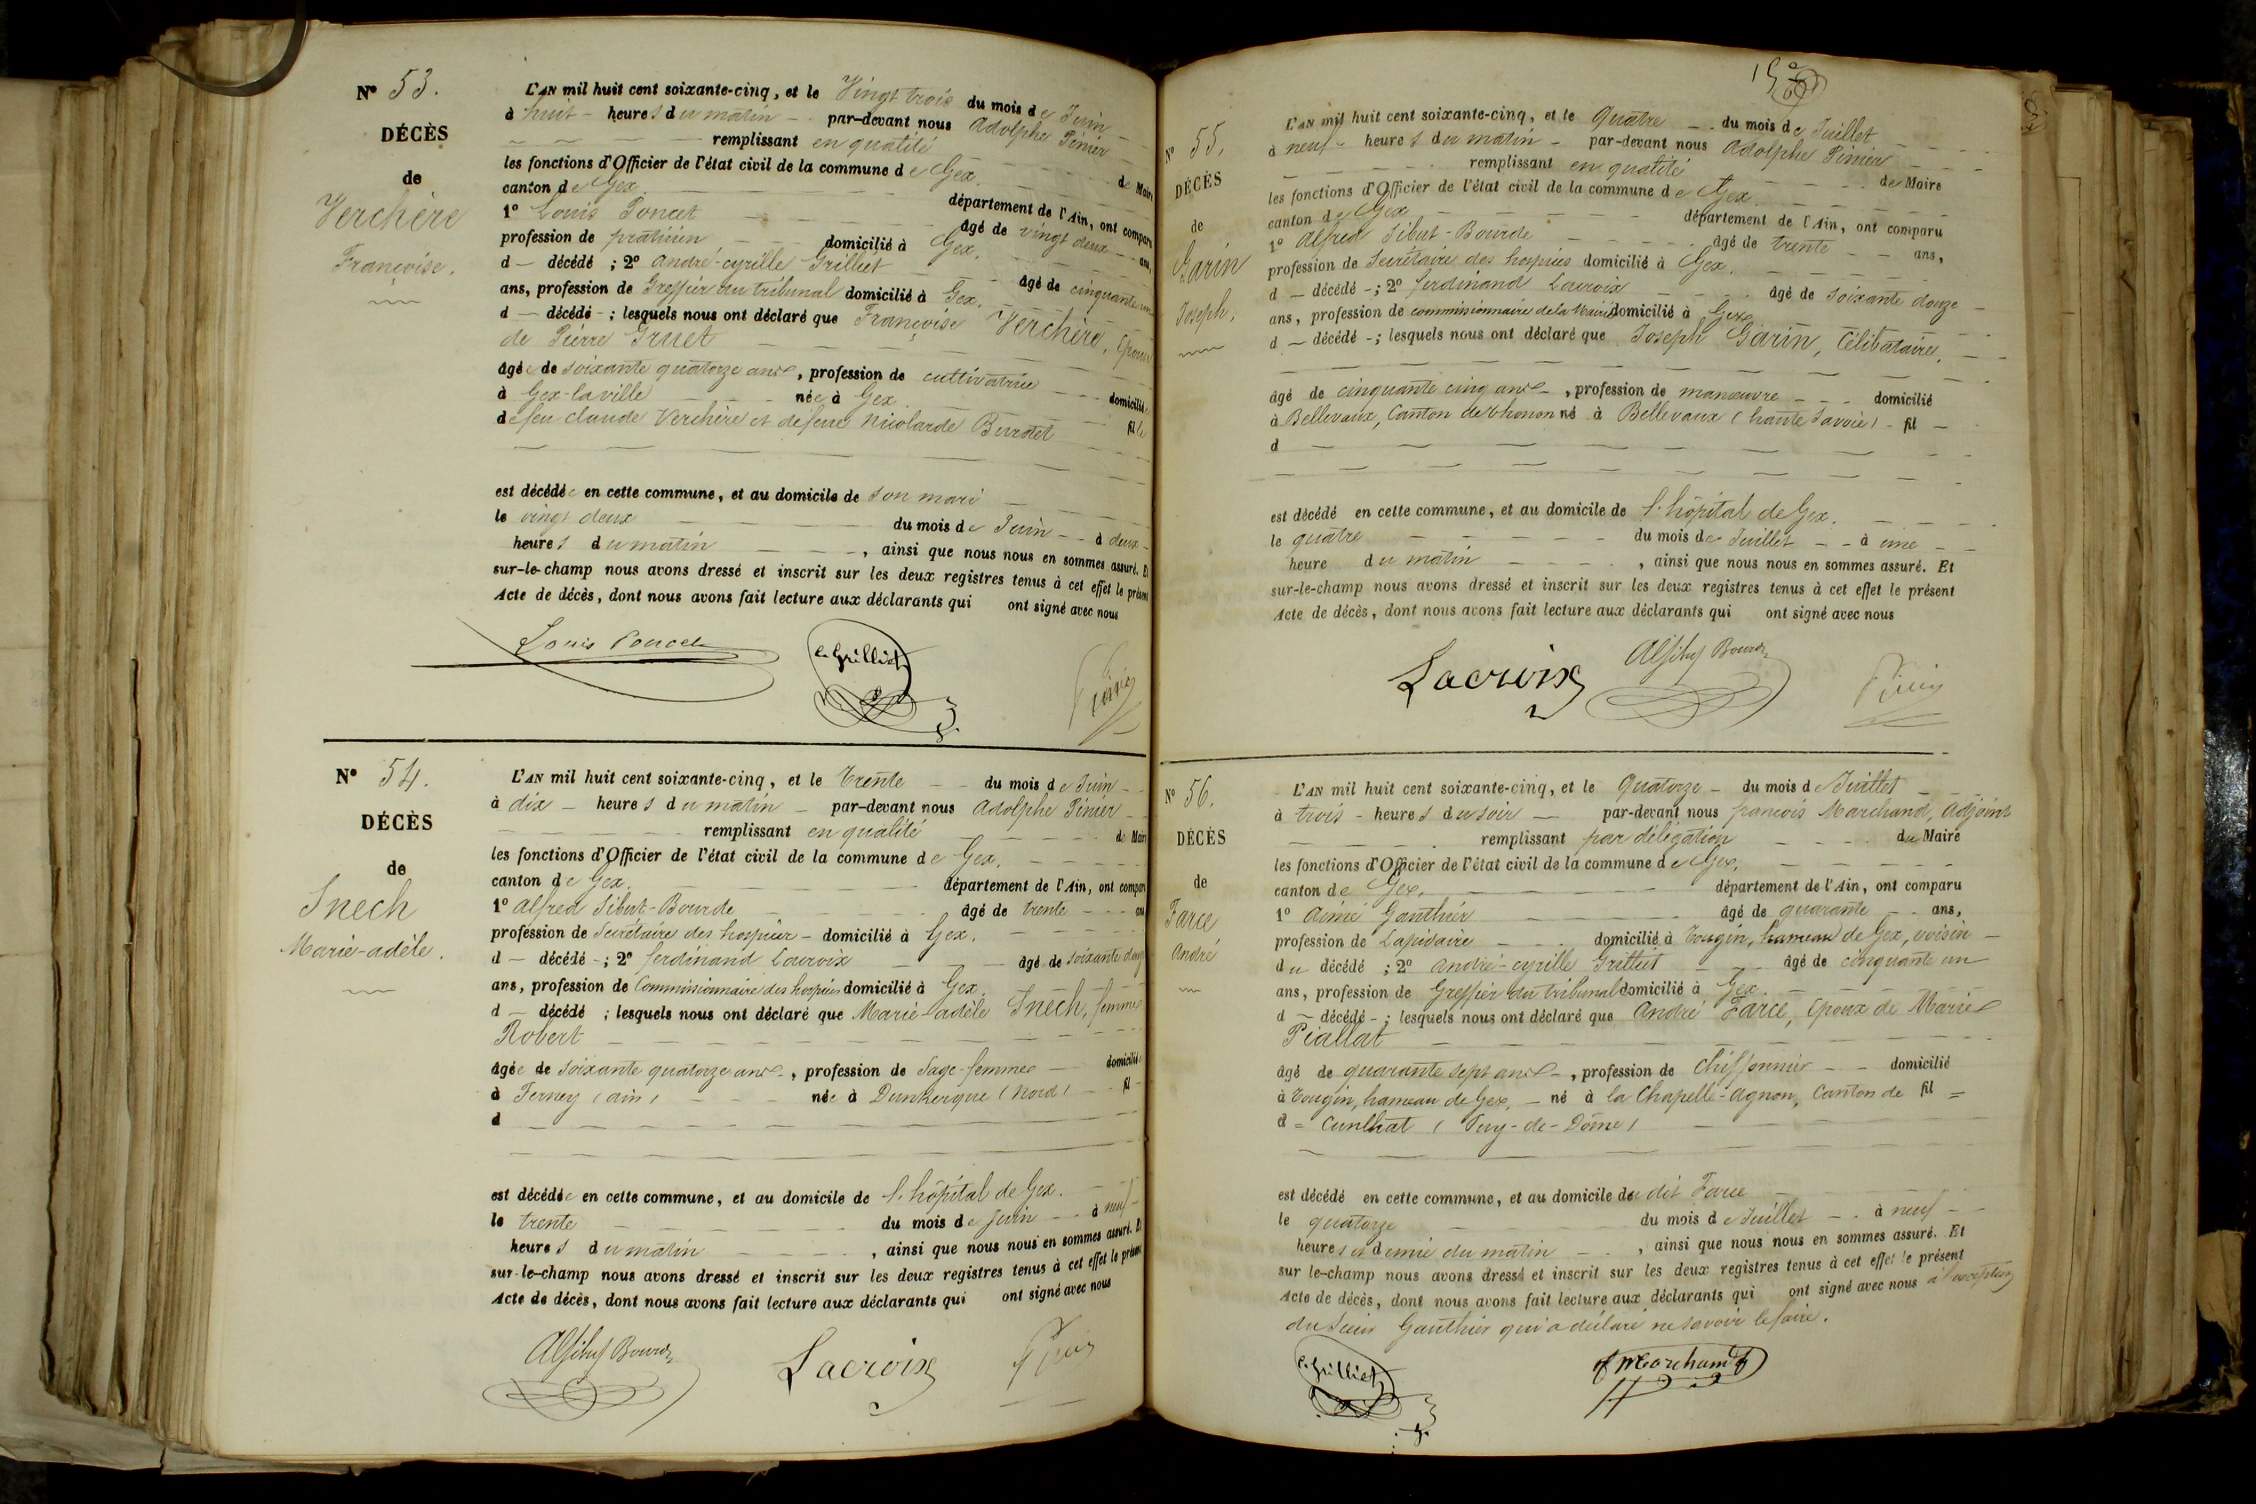 N° 53.
DÉCÈS
de
Verchère
Françoise.
L'AN mil huit cent soixante-cinq, et le Vingt trois du mois de Juin
à huit heures du matin par-devant nous Adolphe Pinier
remplissant en qualité de Maire
les fonctions d'Officier de l'état civil de la commune de Gex.
canton de Gex. département de l'Ain, ont comparu
1° Louis Poncet âgé de vingt deux ans,
profession de praticien domicilié à Gex.
d décédé ; 2° André-cyrille Grilliet âgé de cinquante un
ans, profession de Greffier du tribunal domicilié à Gex.
d décédé ; lesquels nous ont déclaré que Françoise Verchère, Epouse
de Pierre Gruet
âgée de soixante quatorze ans, profession de cultivatrice domiciliée
à Gex-la-ville née à Gex fille
de feu Claude Verchère et de feue Nicolarde
est décédée en cette commune, et au domicile de son mari
le vingt deux du mois de Juin à deux
heures du matin, ainsi que nous nous en sommes assuré. Et
sur-le-champ nous avons dressé et inscrit sur les deux registres tenus à cet effet le présent
Acte de décès, dont nous avons fait lecture aux déclarants qui ont signé avec nous
Louis Poncet
C. Grilliet
Pinier
N° 54.
DÉCÈS
de
Snech
Marie-adèle.
L'AN mil huit cent soixante-cinq, et le trente du mois de Juin
à dix heures du matin par-devant nous Adolphe Pinier
remplissant en qualité de Maire
les fonctions d'Officier de l'état civil de la commune de Gex.
canton de Gex. département de l'Ain, ont comparu
1° Alfred Sibut-Bourde âgé de trente ans
profession de Secrétaire des hospices domicilié à Gex.
d décédé ; 2° ferdinand Lacroix âgé de soixante douze
ans, profession de Commissionnaire des hospices domicilié à Gex.
d décédé ; lesquels nous ont déclaré que Marie-adèle Snech, femme
Robert
âgée de soixante quatorze ans, profession de Sage-femme domiciliée
à Ferney (ain) née à Dunkerque (Nord) fil
d
est décédée en cette commune, et au domicile de l'hôpital de Gex.
le trente du mois de Juin à neuf
heures du matin, ainsi que nous nous en sommes assuré. Et
sur-le-champ nous avons dressé et inscrit sur les deux registres tenus à cet effet le présent
Acte de décès, dont nous avons fait lecture aux déclarants qui ont signé avec nous
ASibut Bourde
Lacroix
Pinier
N° 55.
DÉCÈS
de
Garin
Joseph,
L'AN mil huit cent soixante-cinq, et le Quatre du mois de Juillet
à neuf heures du matin par-devant nous Adolphe Pinier
remplissant en qualité de Maire
les fonctions d'Officier de l'état civil de la commune de Gex
canton de Gex département de l'Ain, ont comparu
1° Alfred Sibut-Bourde âgé de trente ans,
profession de Secrétaire des hospices domicilié à Gex.
d décédé ; 2° ferdinand Lacroix âgé de soixante douze
ans, profession de commissionnaire de la Mairie domicilié à Gex
d décédé ; lesquels nous ont déclaré que Joseph Garin, Célibataire,
âgé de cinquante cinq ans, profession de manœuvre domicilié
à Bellevaux, Canton de Thonon né à Bellevaux (haute Savoie) fil
d
est décédé en cette commune, et au domicile de l'hôpital de Gex.
le quatre du mois de Juillet à une
heure du matin, ainsi que nous nous en sommes assuré. Et
sur-le-champ nous avons dressé et inscrit sur les deux registres tenus à cet effet le présent
Acte de décès, dont nous avons fait lecture aux déclarants qui ont signé avec nous
Lacroix
ASibut Bourde
Pinier
N° 56.
DÉCÈS
de
Farce
André
L'AN mil huit cent soixante-cinq, et le Quatorze du mois de Juillet
à trois heures du soir par-devant nous françois Marchand, Adjoint
remplissant par délégation du Maire
les fonctions d'Officier de l'état civil de la commune de Gex,
canton de Gex, département de l'Ain, ont comparu
1° Aimé Gauthier âgé de quarante ans,
profession de Lapidaire domicilié à Tougin, hameau de Gex, voisin
du décédé ; 2° André-cyrille Grilliet âgé de cinquante un
ans, profession de Greffier du tribunal domicilié à Gex.
d décédé ; lesquels nous ont déclaré que André Farce, Epoux de Marie
Piallat
âgé de quarante sept ans, profession de Chiffonnier domicilié
à Tougin, hameau de Gex, né à la Chapelle-Agnon, Canton de fil
d Cunlhat (Puy-de-Dôme)
est décédé en cette commune, et au domicile du dit Farce
le quatorze du mois de Juillet à neuf
heures et demie du matin, ainsi que nous nous en sommes assuré. Et
sur le-champ nous avons dressé et inscrit sur les deux registres tenus à cet effet le présent
Acte de décès, dont nous avons fait lecture aux déclarants qui ont signé avec nous à l'exception
du Sieur Gauthier qui a déclaré ne savoir le faire.
C. Grilliet
f Marchand